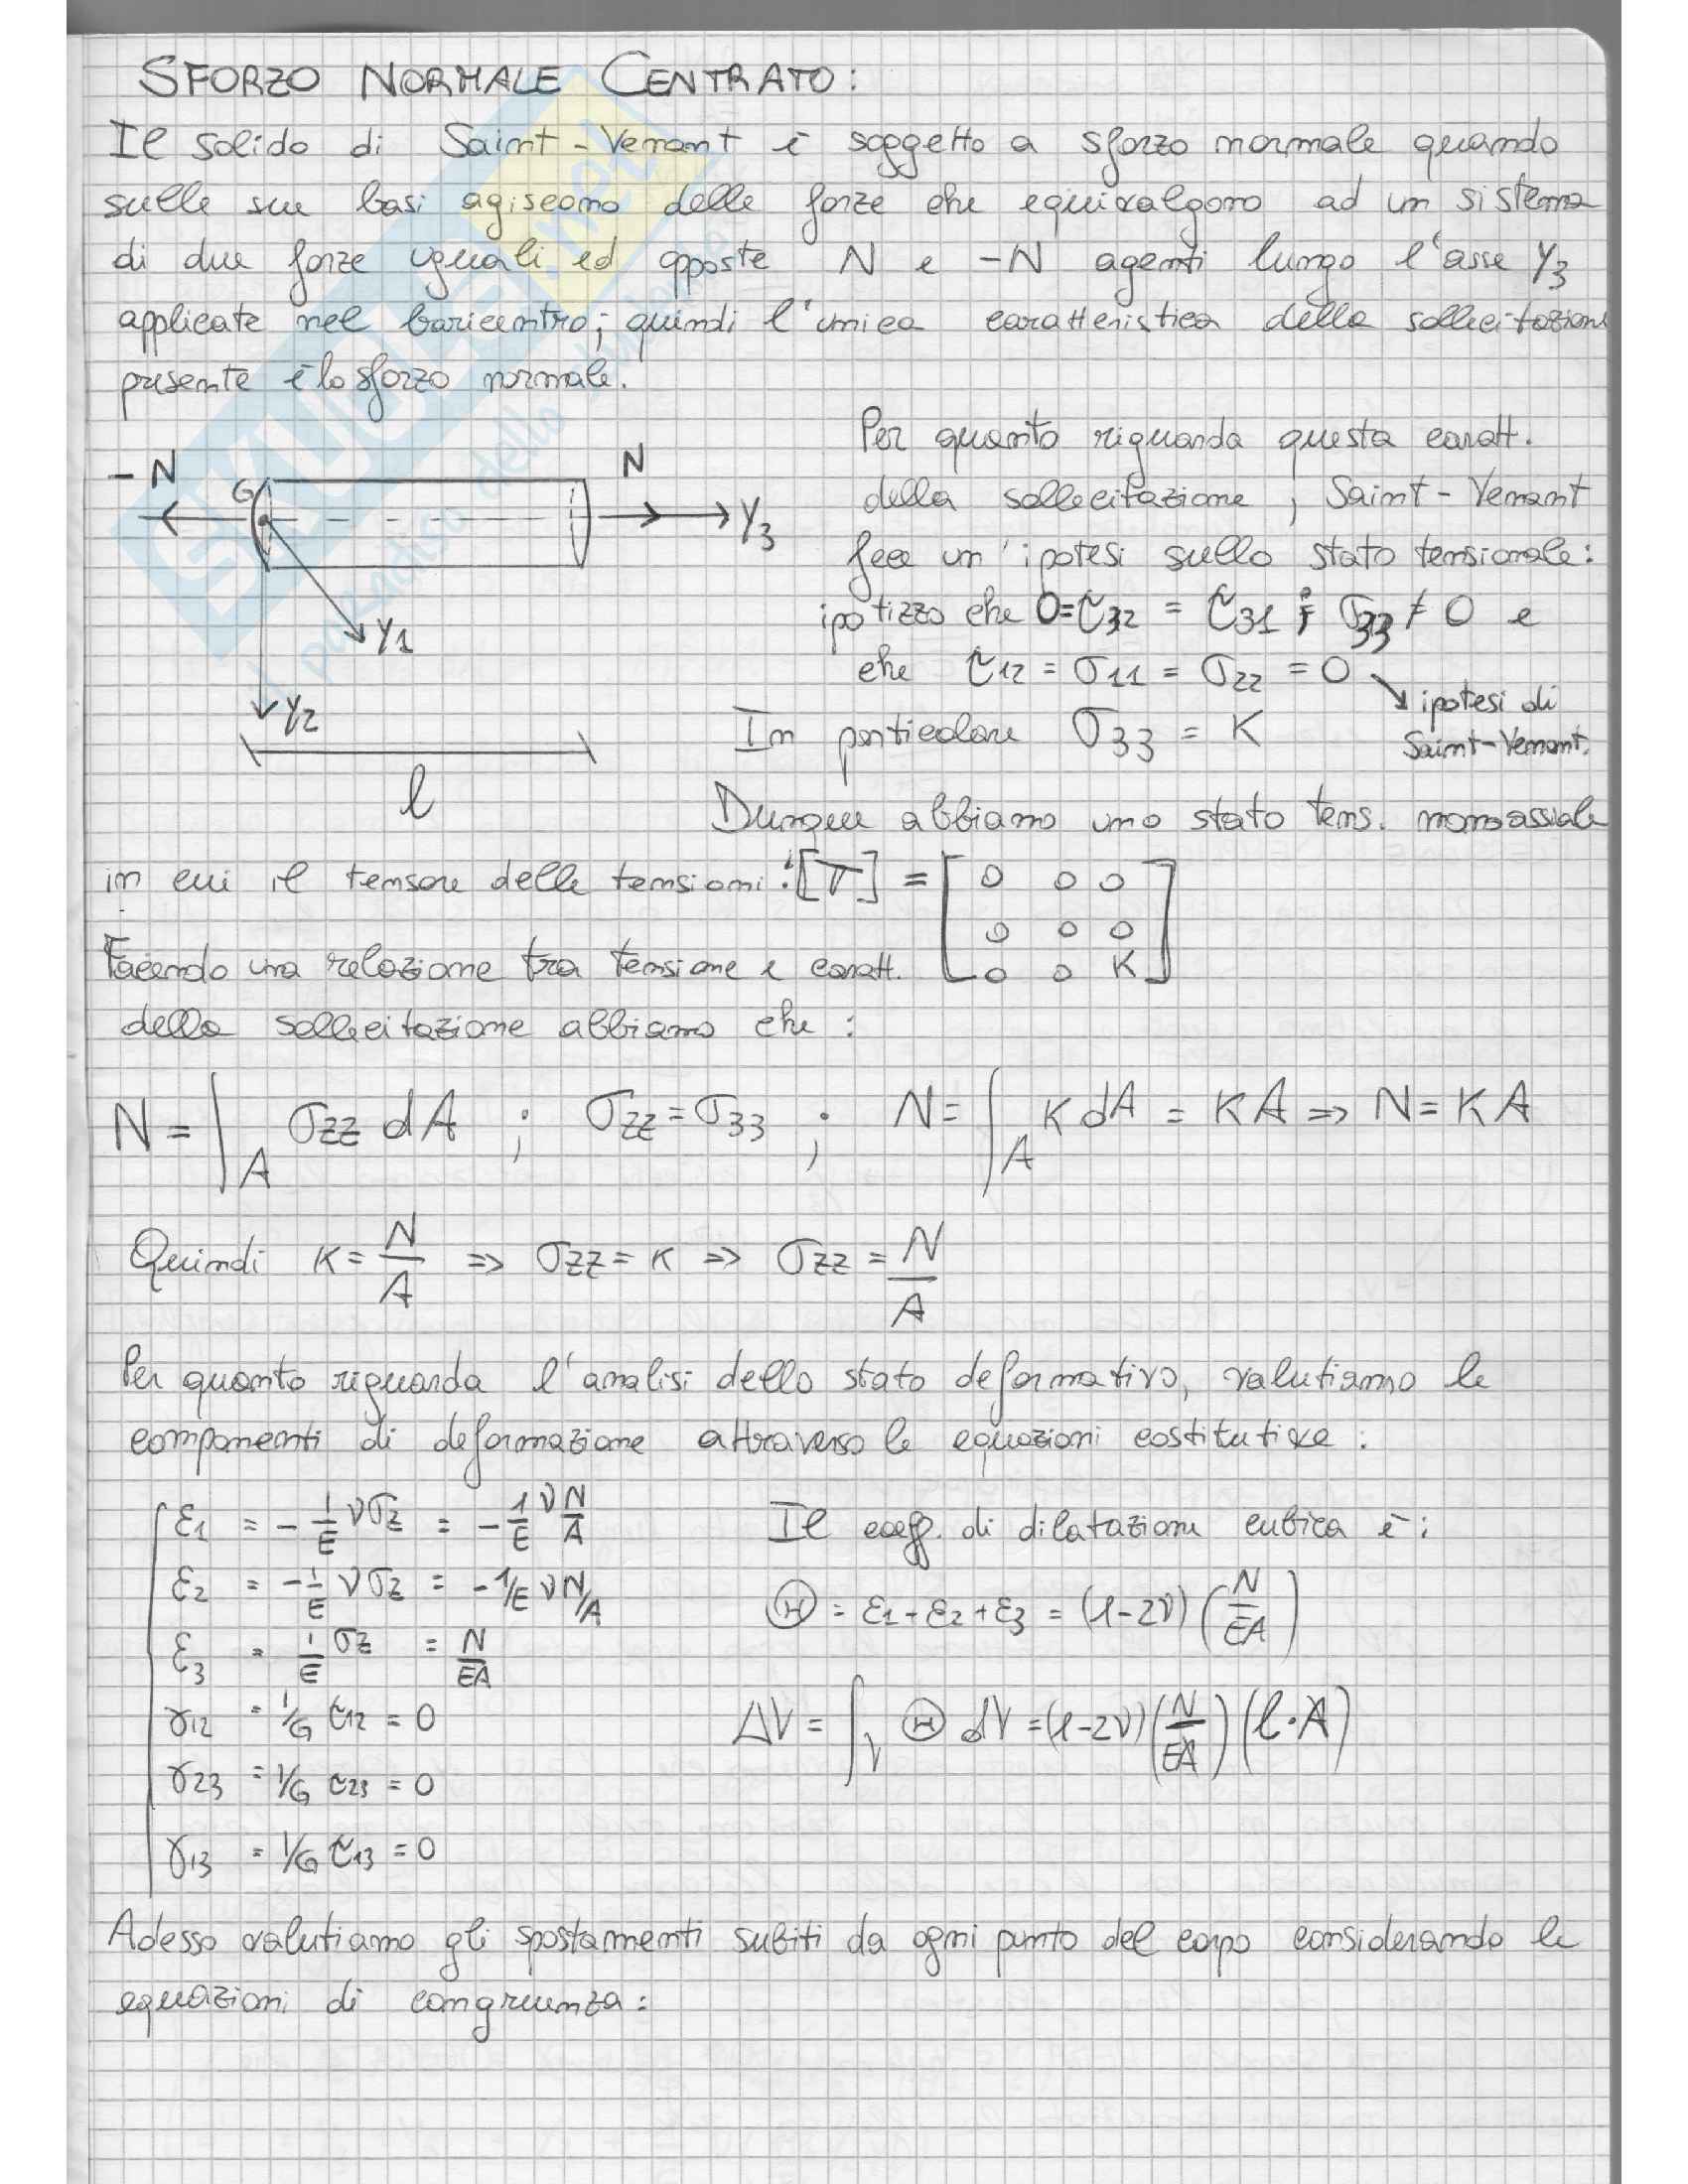 SFORZO NORMALE CENTRATO:
Il solido di Saint-Venant è soggetto a sforzo normale quando
sulle sue basi agiscono delle forze che equivalgono ad un sistema
di due forze uguali ed opposte N e -N agenti lungo l'asse Y3
applicate nel baricentro; quindi l'unica caratteristica della sollecitazione
presente è lo sforzo normale.
Per quanto riguarda questa caratt.
della sollecitazione, Saint-Venant
fece un'ipotesi sullo stato tensionale:
ipotizzo che 0=τ32 = τ31 ; σ33 ≠ 0 e
che τ12 = σ11 = σ22 = 0
ipotesi di
Saint-Venant.
In particolare σ33 = K
-N
G
N
Y3
Y1
Y2
l
Dunque abbiamo uno stato tens. monoassiale
in cui il tensore delle tensioni: [T] = [0 0 0
0 0 0
0 0 K]
Facendo una relazione tra tensione e caratt.
della sollecitazione abbiamo che:
N = ∫A σzz dA ; σzz = σ33 ; N = ∫A K dA = KA => N = KA
Quindi K = N/A => σzz = K => σzz = N/A
Per quanto riguarda l'analisi dello stato deformativo, valutiamo le
componenti di deformazione attraverso le equazioni costitutive:
ε1 = - 1/E νσz = - 1/E ν N/A
ε2 = - 1/E νσz = - 1/E ν N/A
ε3 = 1/E σz = N/EA
γ12 = 1/G τ12 = 0
γ23 = 1/G τ23 = 0
γ13 = 1/G τ13 = 0
Il coeff. di dilatazione cubica è:
Θ = ε1 + ε2 + ε3 = (1-2ν) (N/EA)
ΔV = ∫V Θ dV = (1-2ν) (N/EA) (l·A)
Adesso valutiamo gli spostamenti subiti da ogni punto del corpo considerando le
equazioni di congruenza: